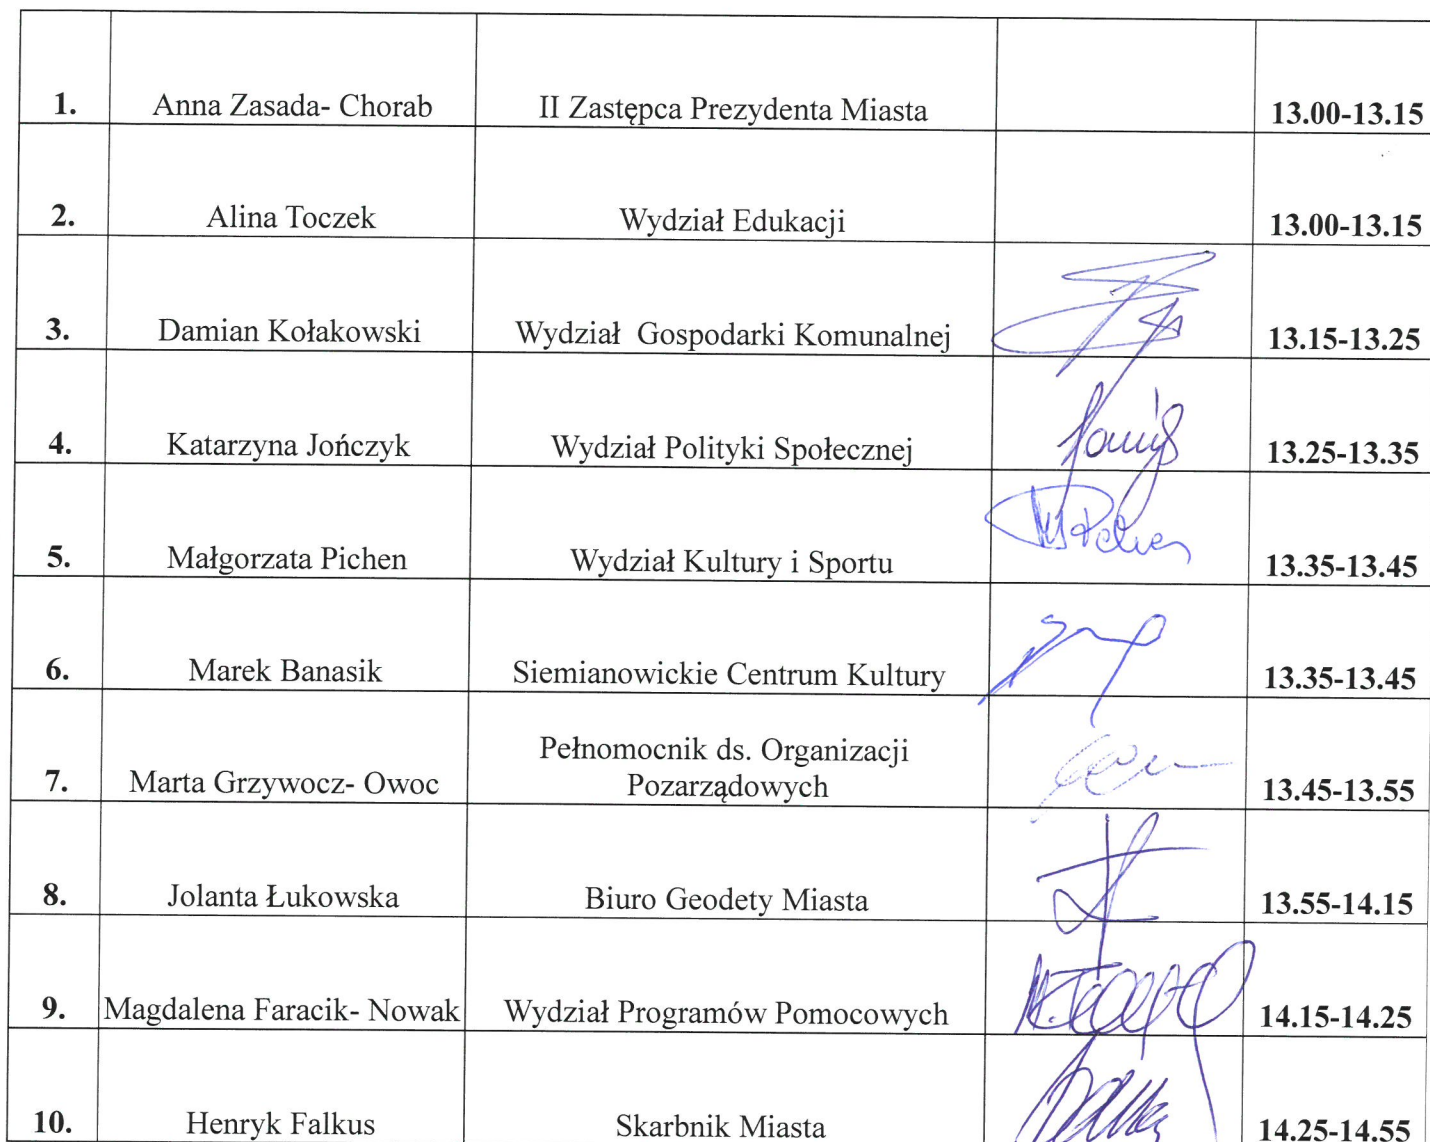 1. Anna Zasada- Chorab II Zastępca Prezydenta Miasta 13.00-13.15
2. Alina Toczek Wydział Edukacji 13.00-13.15
3. Damian Kołakowski Wydział Gospodarki Komunalnej 13.15-13.25
4. Katarzyna Jończyk Wydział Polityki Społecznej 13.25-13.35
5. Małgorzata Pichen Wydział Kultury i Sportu 13.35-13.45
6. Marek Banasik Siemianowickie Centrum Kultury 13.35-13.45
Pełnomocnik ds. Organizacji
7. Marta Grzywocz- Owoc Pozarządowych 13.45-13.55
8. Jolanta Łukowska Biuro Geodety Miasta 13.55-14.15
9. Magdalena Faracik- Nowak Wydział Programów Pomocowych 14.15-14.25
10. Henryk Falkus Skarbnik Miasta 14.25-14.55